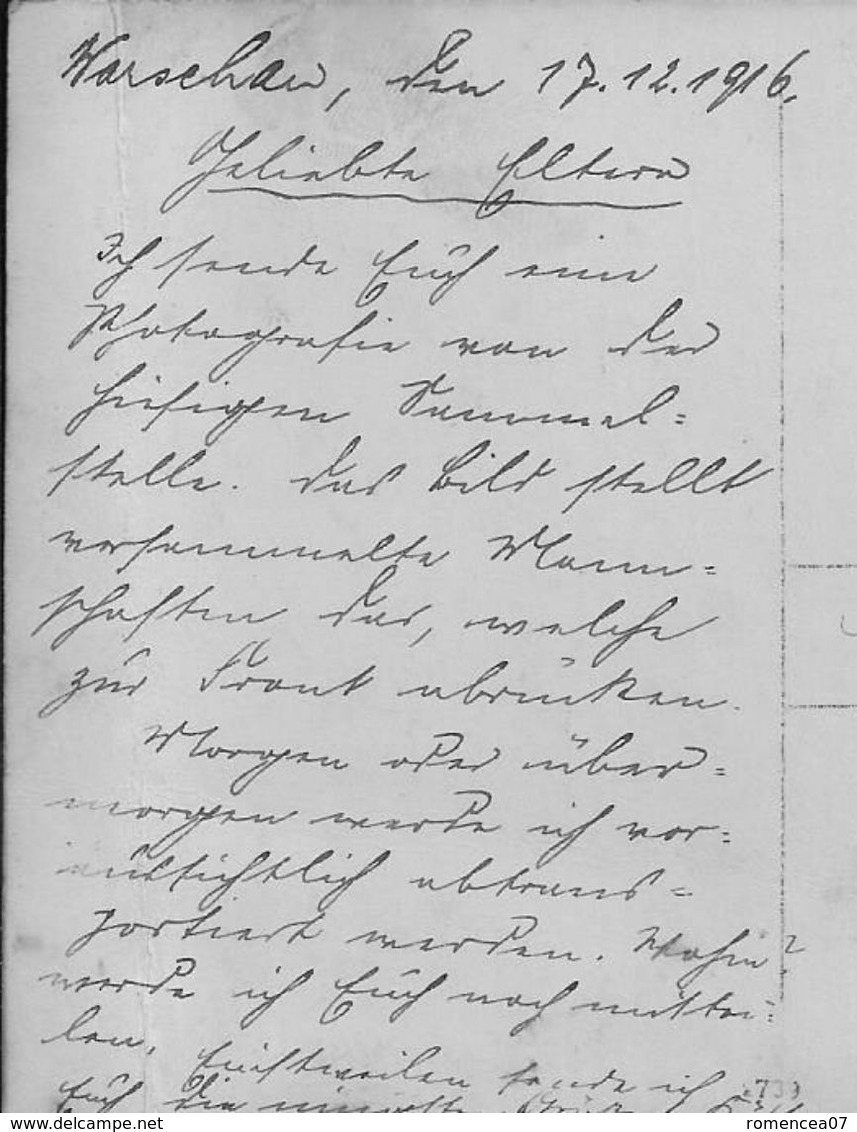 Warschau, den 17.12.1916.
Geliebte Eltern
Ich sende Euch eine
Photografie von der
hiesigen Sammel=
stelle. Das Bild stellt
versammelte Mann=
schaften dar, welche
zur Front abrücken.
Morgen oder über=
morgen werde ich vor=
aussichtlich abtrans=
portiert werden. Wohin?
werde ich Euch noch mittei=
len. Einstweilen sende ich
Euch die
www.delcampe.net
romencea07